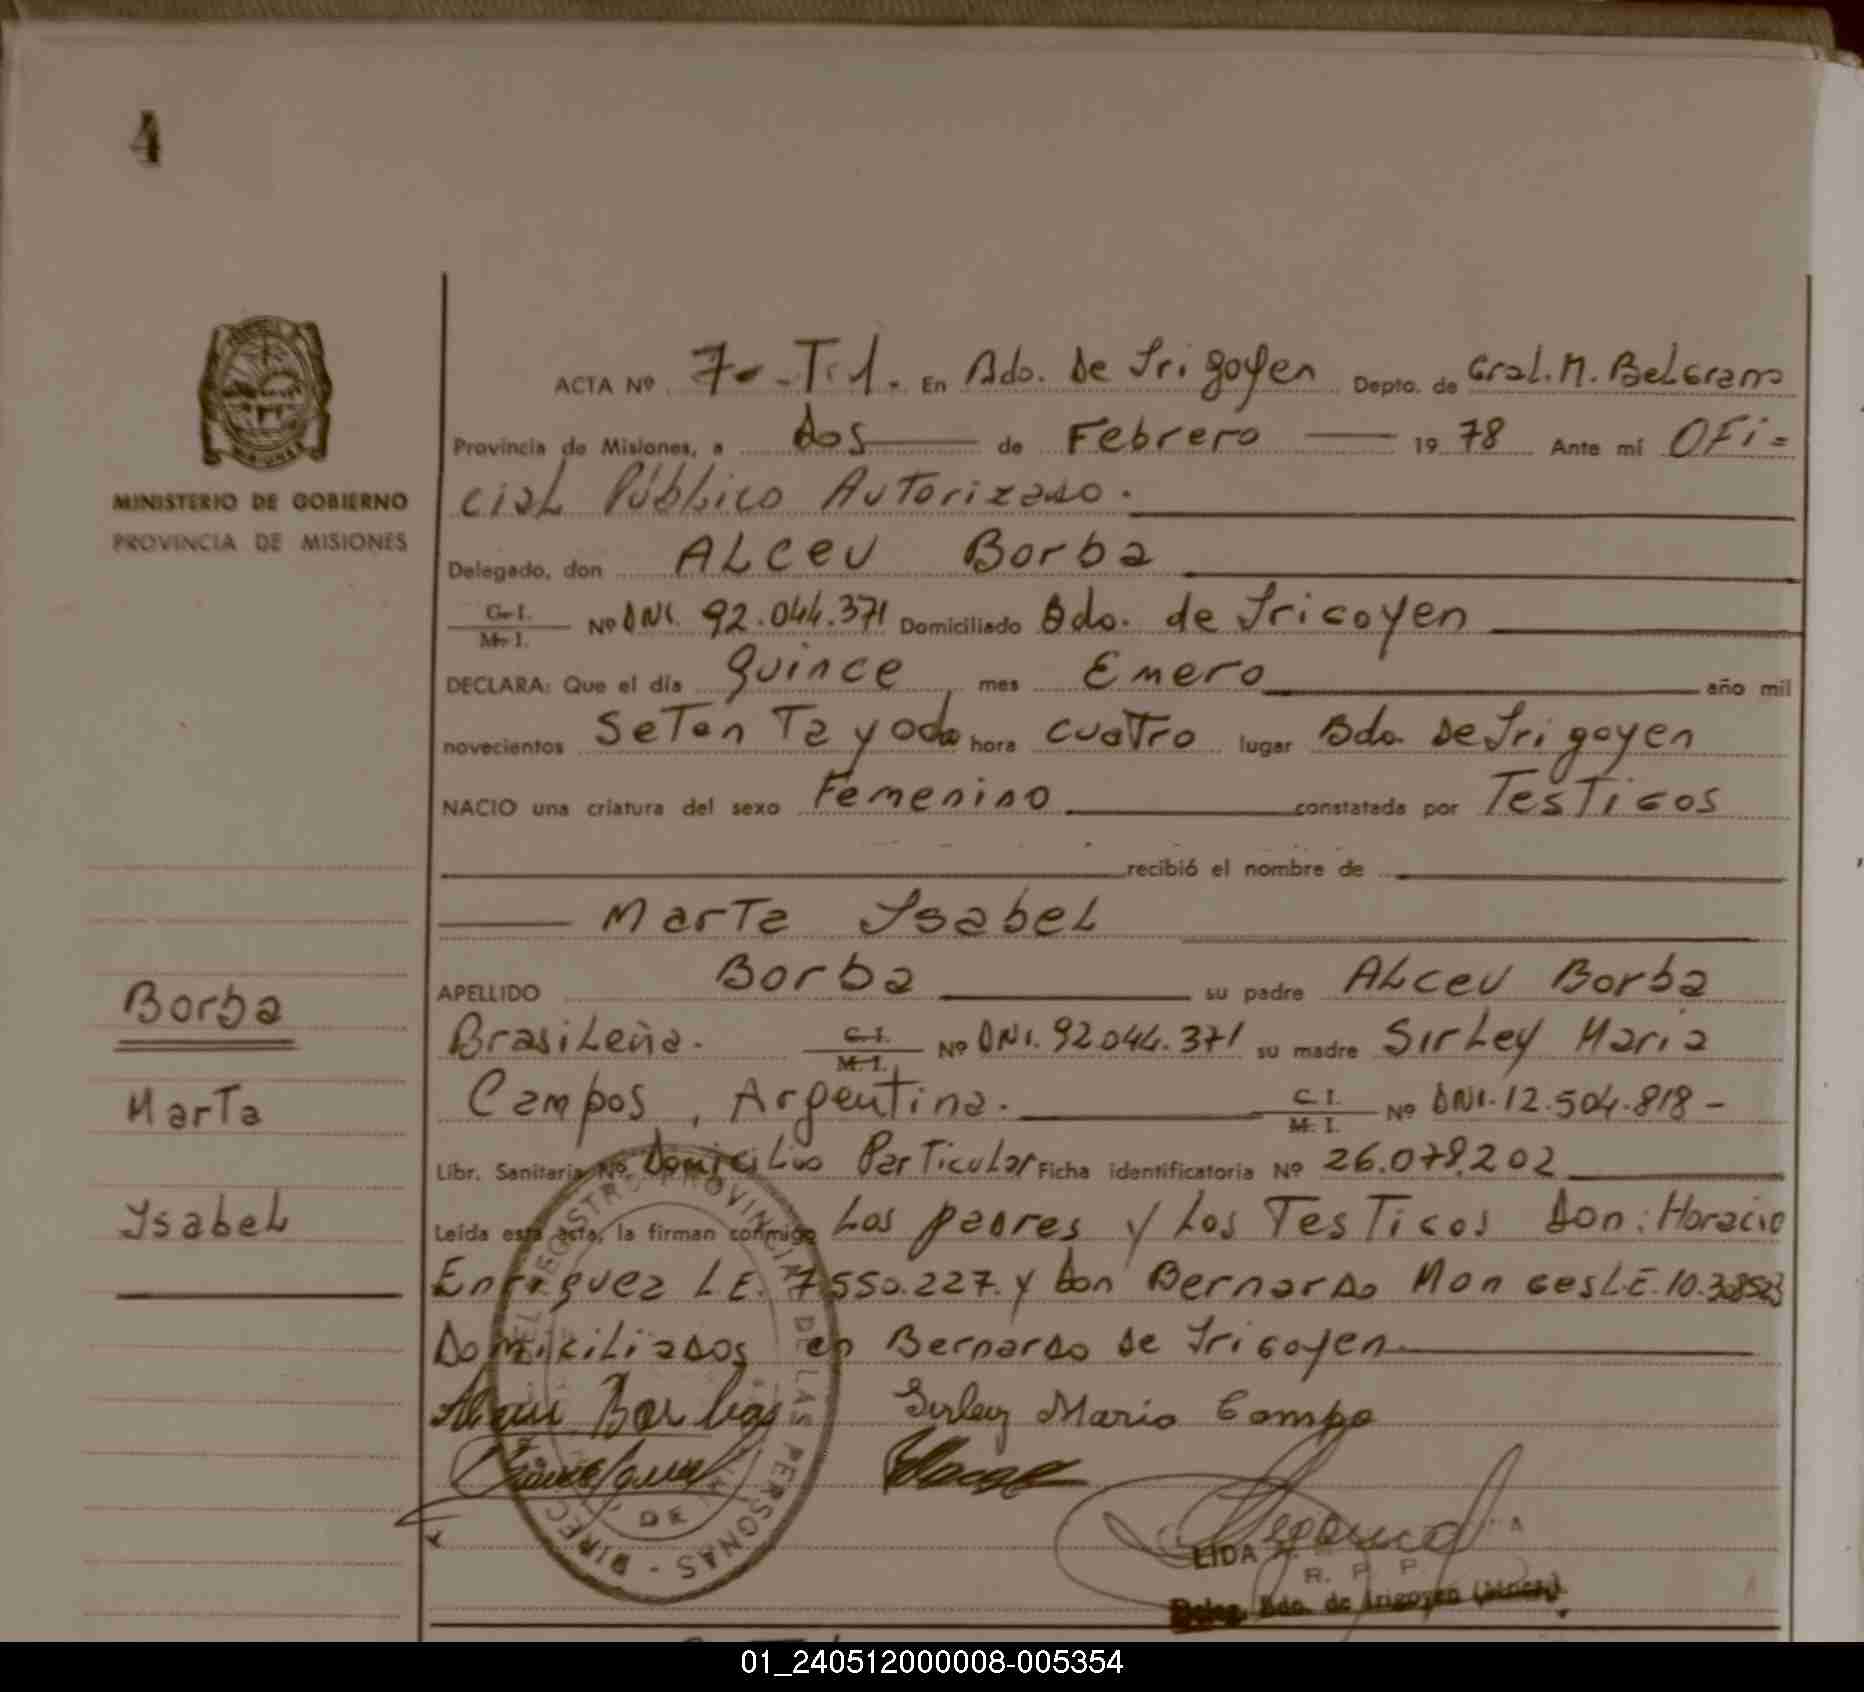 4
MINISTERIO DE GOBIERNO
PROVINCIA DE MISIONES
ACTA Nº 7-.T.1. En Bdo. De Irigoyen Depto. de Gral. M. Belgrano
Provincia de Misiones, a Dos de Febrero 19 78 Ante mí OFi=
cial Público Autorizado.
Delegado, don ALceu Borba
C.I. M.I. Nº DNI. 92.044.371 Domiciliado Bdo. de Irigoyen
DECLARA: Que el día Quince mes Enero año mil
novecientos SeTenTa y ocho hora cuaTro lugar Bdo. De Irigoyen
NACIO una criatura del sexo Femenino constatada por TesTigos
recibió el nombre de
MarTa YsabeL
APELLIDO Borba su padre ALceu Borba
BrasiLeña. C.I. M.I. Nº DNI. 92.044.371 su madre SirLey Maria
Campos, Argentina. C.I. M.I. Nº DNI. 12.504.818 -
Libr. Sanitaria Nº DomiciLio ParTicuLar Ficha identificatoria Nº 26.078.202
Leída esta acta, la firman conmigo Los padres y Los TesTigos Don: Horacio
Enriquez L.E. 7.550.227. y Don Bernardo Monges L.E. 10.308523
DomiciLiados en Bernardo de Irigoyen
Borba
MarTa
YsabeL
Alceu Borba Sirley Maria Campo
DIRECC DEL REGISTRO PROVINCIAL DE LAS PERSONAS
DE
LIDA
R. P. P.
Deleg. Bdo. de Irigoyen
01_240512000008-005354